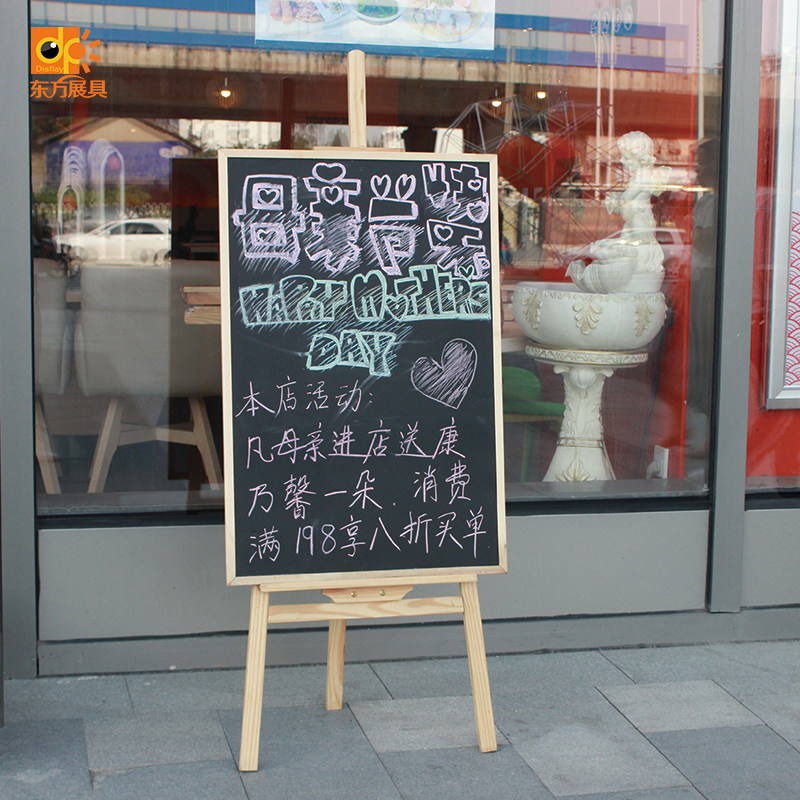 dp
Disflay
东方展具
母亲节快乐
HAPPY MOTHERS
DAY
本店活动:
凡母亲进店送康
乃馨一朵.消费
满198享八折买单